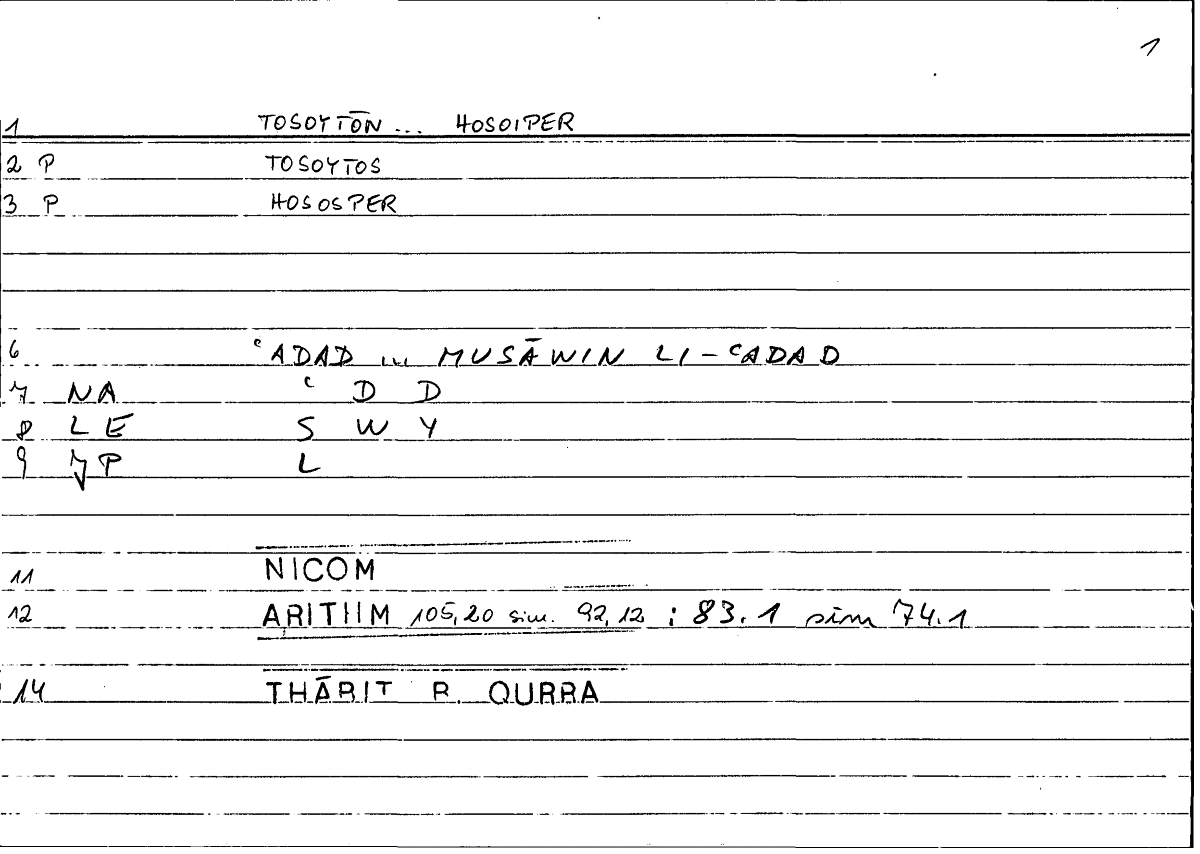 1
1 TOSOYTŌN ... HOSOIPER
2 P TOSOYTOS
3 P HOSOSPER
6 ʿADAD ... MUSĀWIN LI-ʿADAD
7 NA ʿ D D
8 LE S W Y
9 7P L
11 NICOM
12 ARITIIM 105,20 sim. 92,12 ; 83.1 sim 74.1
14 THĀBIT B. QURRA